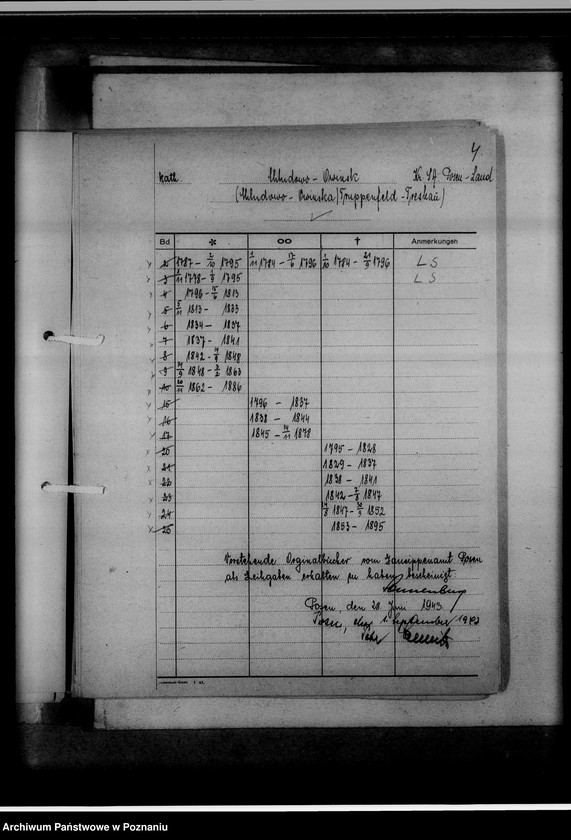 4
kath. Chludowo - Owinsk Kr. St. Posen-Land
(Chludowo - Owinska / Truppenfeld - Treskau)
Bd * ∞ † Anmerkungen
2 1787 - 2/10 1795 2/11 1784 - 17/6 1796 1/10 1784 - 21/9 1796 LS
3 2/11 1778 - 1/9 1795 LS
4 1796 - 15/6 1813
5 5/11 1813 - 1833
6 1834 - 1837
7 1837 - 1841
8 1842 - 14/9 1848
9 24/9 1848 - 3/2 1863
10 20/11 1862 - 1886
15 1796 - 1837
16 1838 - 1844
17 1845 - 14/11 1878
20 1795 - 1828
21 1829 - 1837
22 1838 - 1841
23 1842 - 7/8 1847
24 14/8 1847 - 30/9 1852
25 1853 - 1895
Vorstehende Orginalbücher vom Gausippenamt Posen
als Leihgaben erhalten zu haben bescheinigt
Posen, den 20. Juni 1943.
Posen, 1. September 1943
Archiwum Państwowe w Poznaniu